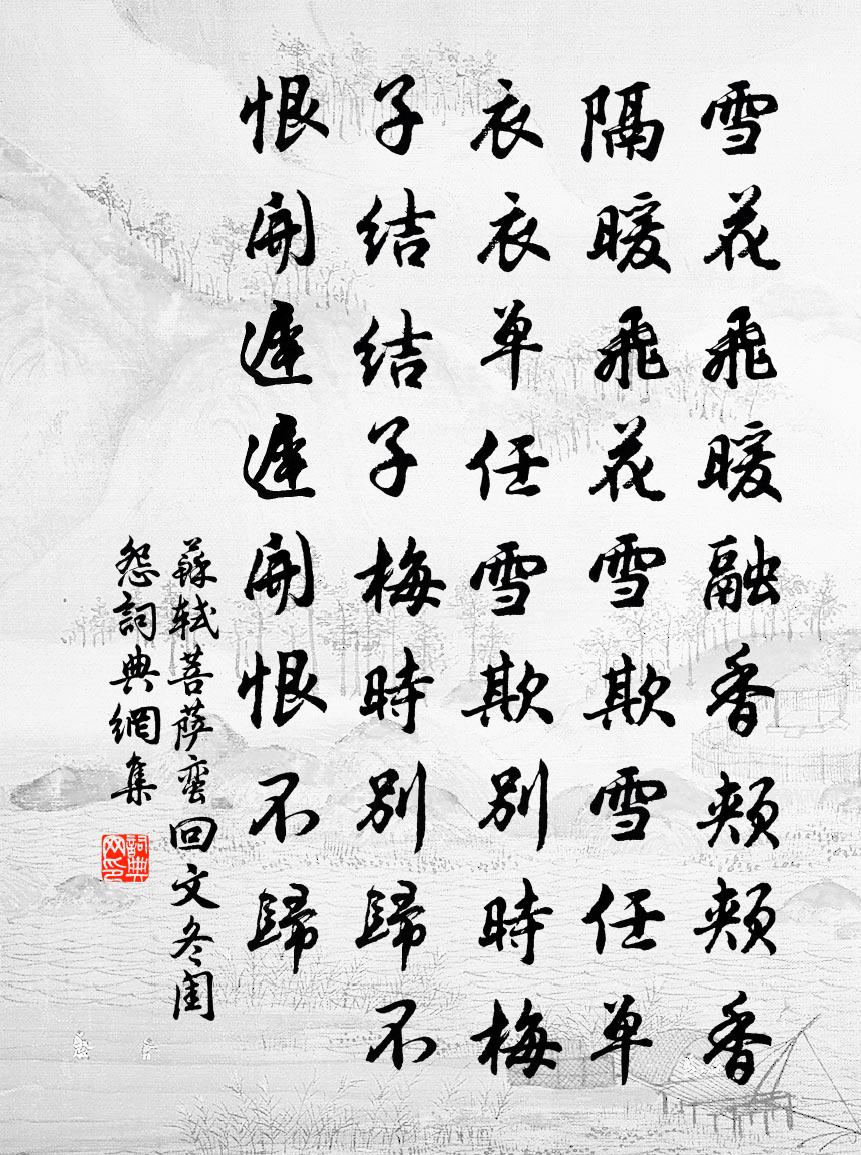 雪花飛暖融香頰頰香
隔暖飛花雪欺雪任單
衣衣單任雪欺別時梅
子結結子梅時別歸不
恨開遲遲開恨不歸
蘇軾菩薩蛮回文冬閨
怨詞典網集
詞典网印